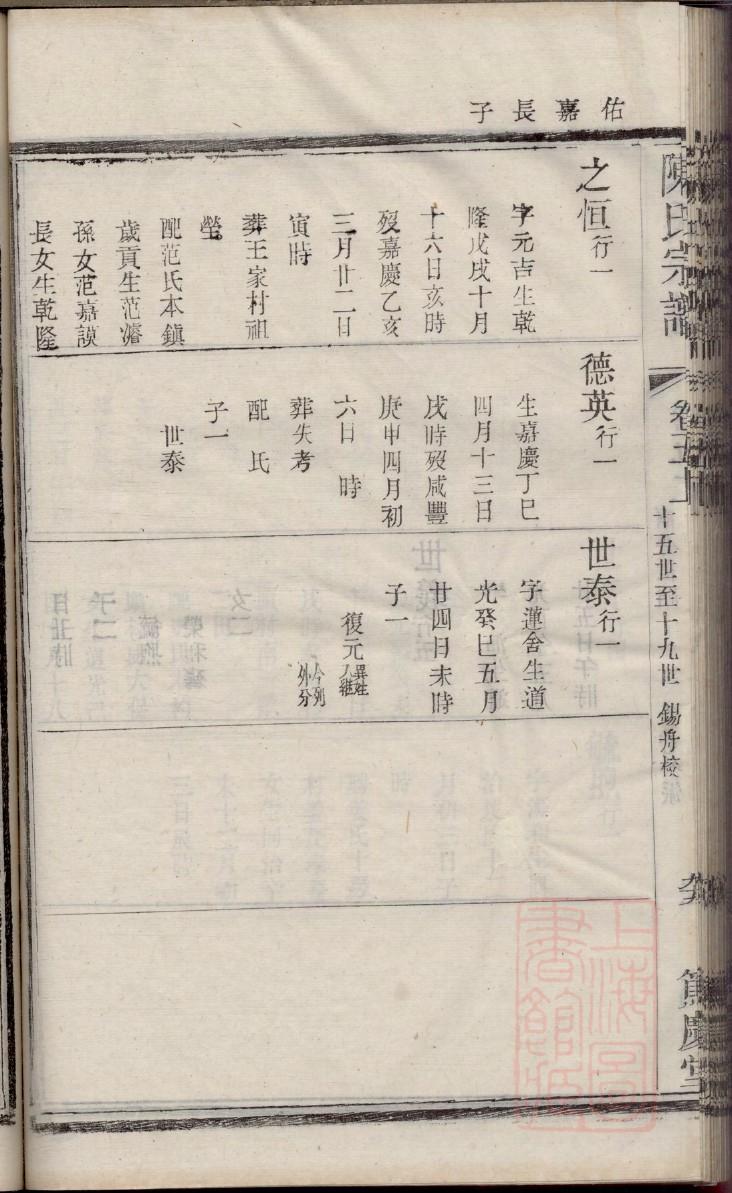 佑嘉長子
之恒行一
字元吉生乾
隆戊戌十月
十六日亥時
歿嘉慶乙亥
三月廿二日
寅時
葬王家村祖
塋
配范氏本鎮
歲貢生范濬
孫女范嘉謨
長女生乾隆
德英行一
生嘉慶丁巳
四月十三日
戌時歿咸豐
庚申四月初
六日 時
葬失考
配 氏
子一
世泰
世泰行一
字蓮舍生道
光癸巳五月
廿四日未時
子一
復元異姓入繼
今列外分
陳氏宗譜
卷五上
十五世至十九世 錫舟校
篤慶堂
上海圖書館藏